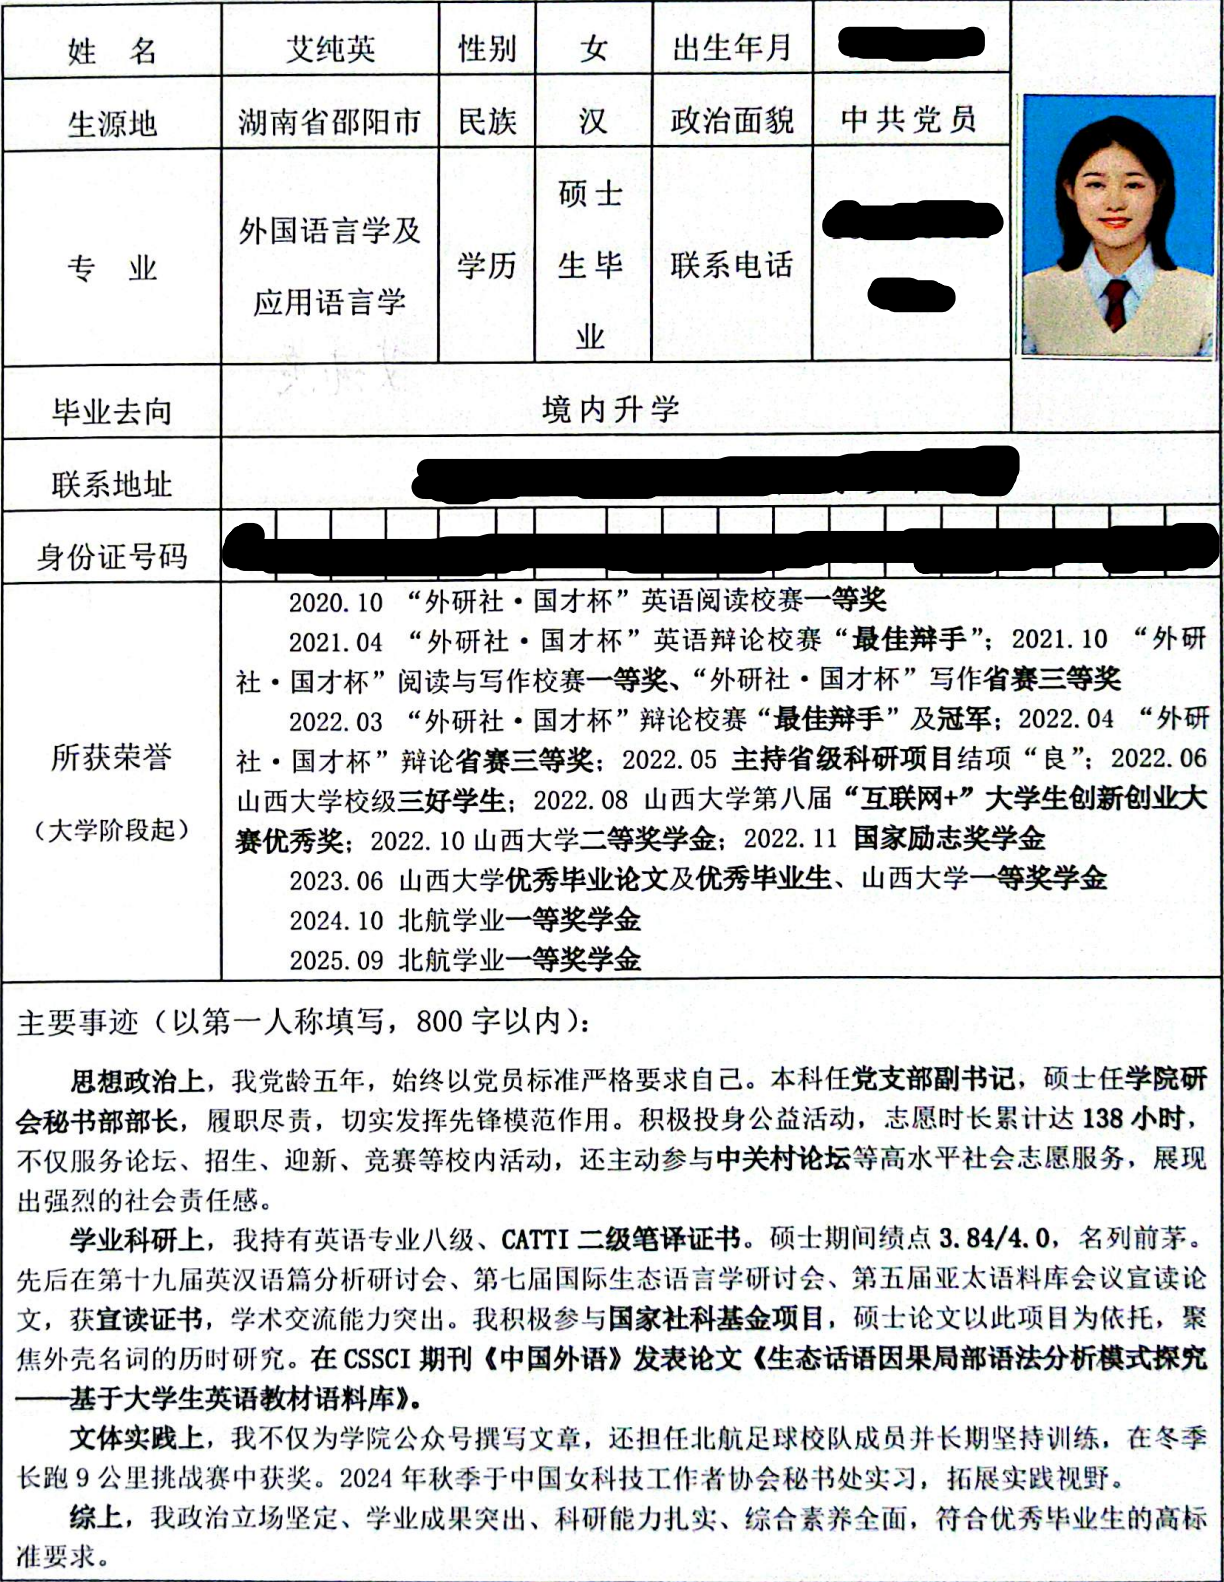 姓 名 艾纯英 性别 女 出生年月
生源地 湖南省邵阳市 民族 汉 政治面貌 中共党员
专 业 外国语言学及 学历 硕士 联系电话
应用语言学 生毕
业
毕业去向 境内升学
联系地址
身份证号码
所获荣誉
（大学阶段起）
2020.10 “外研社·国才杯”英语阅读校赛一等奖
2021.04 “外研社·国才杯”英语辩论校赛“最佳辩手”；2021.10 “外研
社·国才杯”阅读与写作校赛一等奖、“外研社·国才杯”写作省赛三等奖
2022.03 “外研社·国才杯”辩论校赛“最佳辩手”及冠军；2022.04 “外研
社·国才杯”辩论省赛三等奖；2022.05 主持省级科研项目结项“良”；2022.06
山西大学校级三好学生；2022.08 山西大学第八届“互联网+”大学生创新创业大
赛优秀奖；2022.10 山西大学二等奖学金；2022.11 国家励志奖学金
2023.06 山西大学优秀毕业论文及优秀毕业生、山西大学一等奖学金
2024.10 北航学业一等奖学金
2025.09 北航学业一等奖学金
主要事迹（以第一人称填写，800 字以内）：
思想政治上，我党龄五年，始终以党员标准严格要求自己。本科任党支部副书记，硕士任学院研
会秘书部部长，履职尽责，切实发挥先锋模范作用。积极投身公益活动，志愿时长累计达 138 小时，
不仅服务论坛、招生、迎新、竞赛等校内活动，还主动参与中关村论坛等高水平社会志愿服务，展现
出强烈的社会责任感。
学业科研上，我持有英语专业八级、CATTI 二级笔译证书。硕士期间绩点 3.84/4.0，名列前茅。
先后在第十九届英汉语篇分析研讨会、第七届国际生态语言学研讨会、第五届亚太语料库会议宣读论
文，获宣读证书，学术交流能力突出。我积极参与国家社科基金项目，硕士论文以此项目为依托，聚
焦外壳名词的历时研究。在 CSSCI 期刊《中国外语》发表论文《生态话语因果局部语法分析模式探究
——基于大学生英语教材语料库》。
文体实践上，我不仅为学院公众号撰写文章，还担任北航足球校队成员并长期坚持训练，在冬季
长跑 9 公里挑战赛中获奖。2024 年秋季于中国女科技工作者协会秘书处实习，拓展实践视野。
综上，我政治立场坚定、学业成果突出、科研能力扎实、综合素养全面，符合优秀毕业生的高标
准要求。